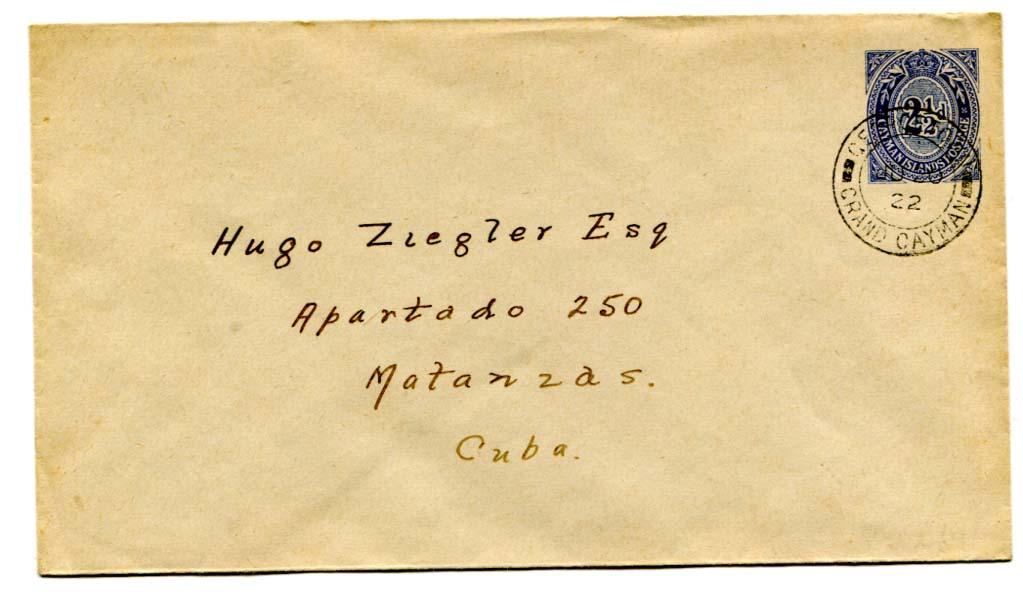 2½d
CAYMAN ISLANDS POSTAGE
22
GRAND CAYMAN
Hugo Ziegler Esq
Apartado 250
Matanzas.
Cuba.